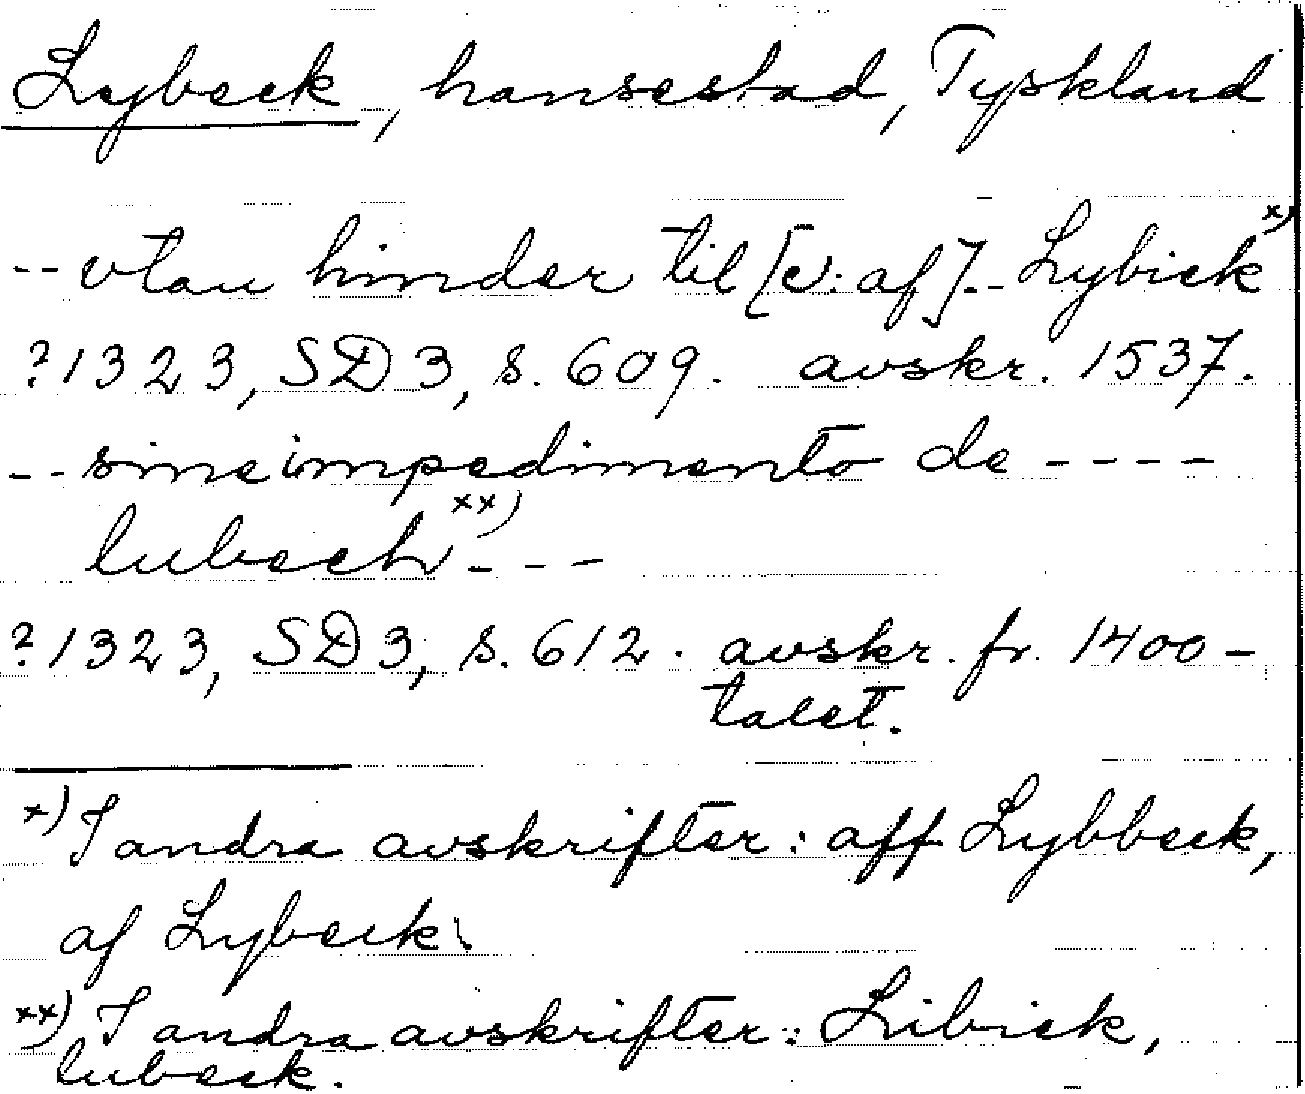 Lybeck, hansestad, Tyskland
-- vtan hinder til [ɔ: af].. Lybick x)
?1323, SD 3, s. 609. avskr. 1537.
-- sine impedimento de ----
lubech xx) ---
?1323, SD 3, s. 612. avskr. fr. 1400-
talet.
x) I andra avskrifter: aff Lybbeck,
af Lybeck.
xx) I andra avskrifter: Libick,
lubeck.